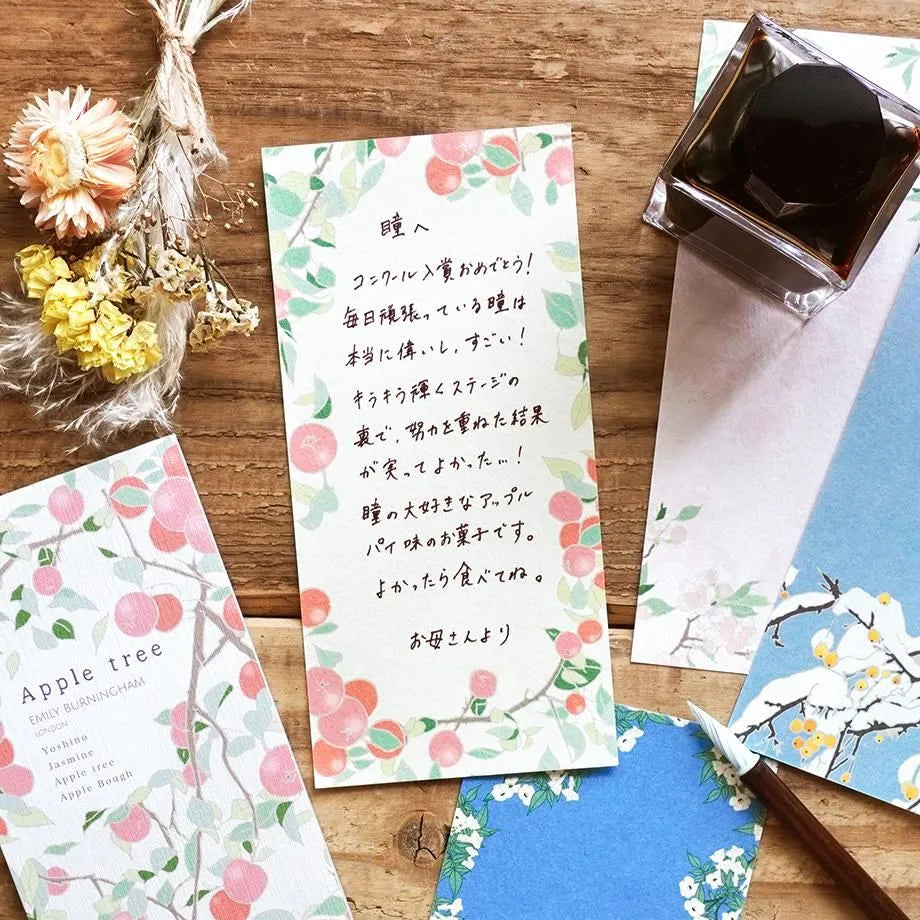 瞳へ
コンクール入賞おめでとう!
毎日頑張っている瞳は
本当に偉いし、すごい!
キラキラ輝くステージの
裏で、努力を重ねた結果
が実ってよかった…!
瞳の大好きなアップル
パイ味のお菓子です。
よかったら食べてね。
お母さんより
Apple tree
EMILY BURNINGHAM
LONDON
Yoshino
Jasmine
Apple tree
Apple Bough